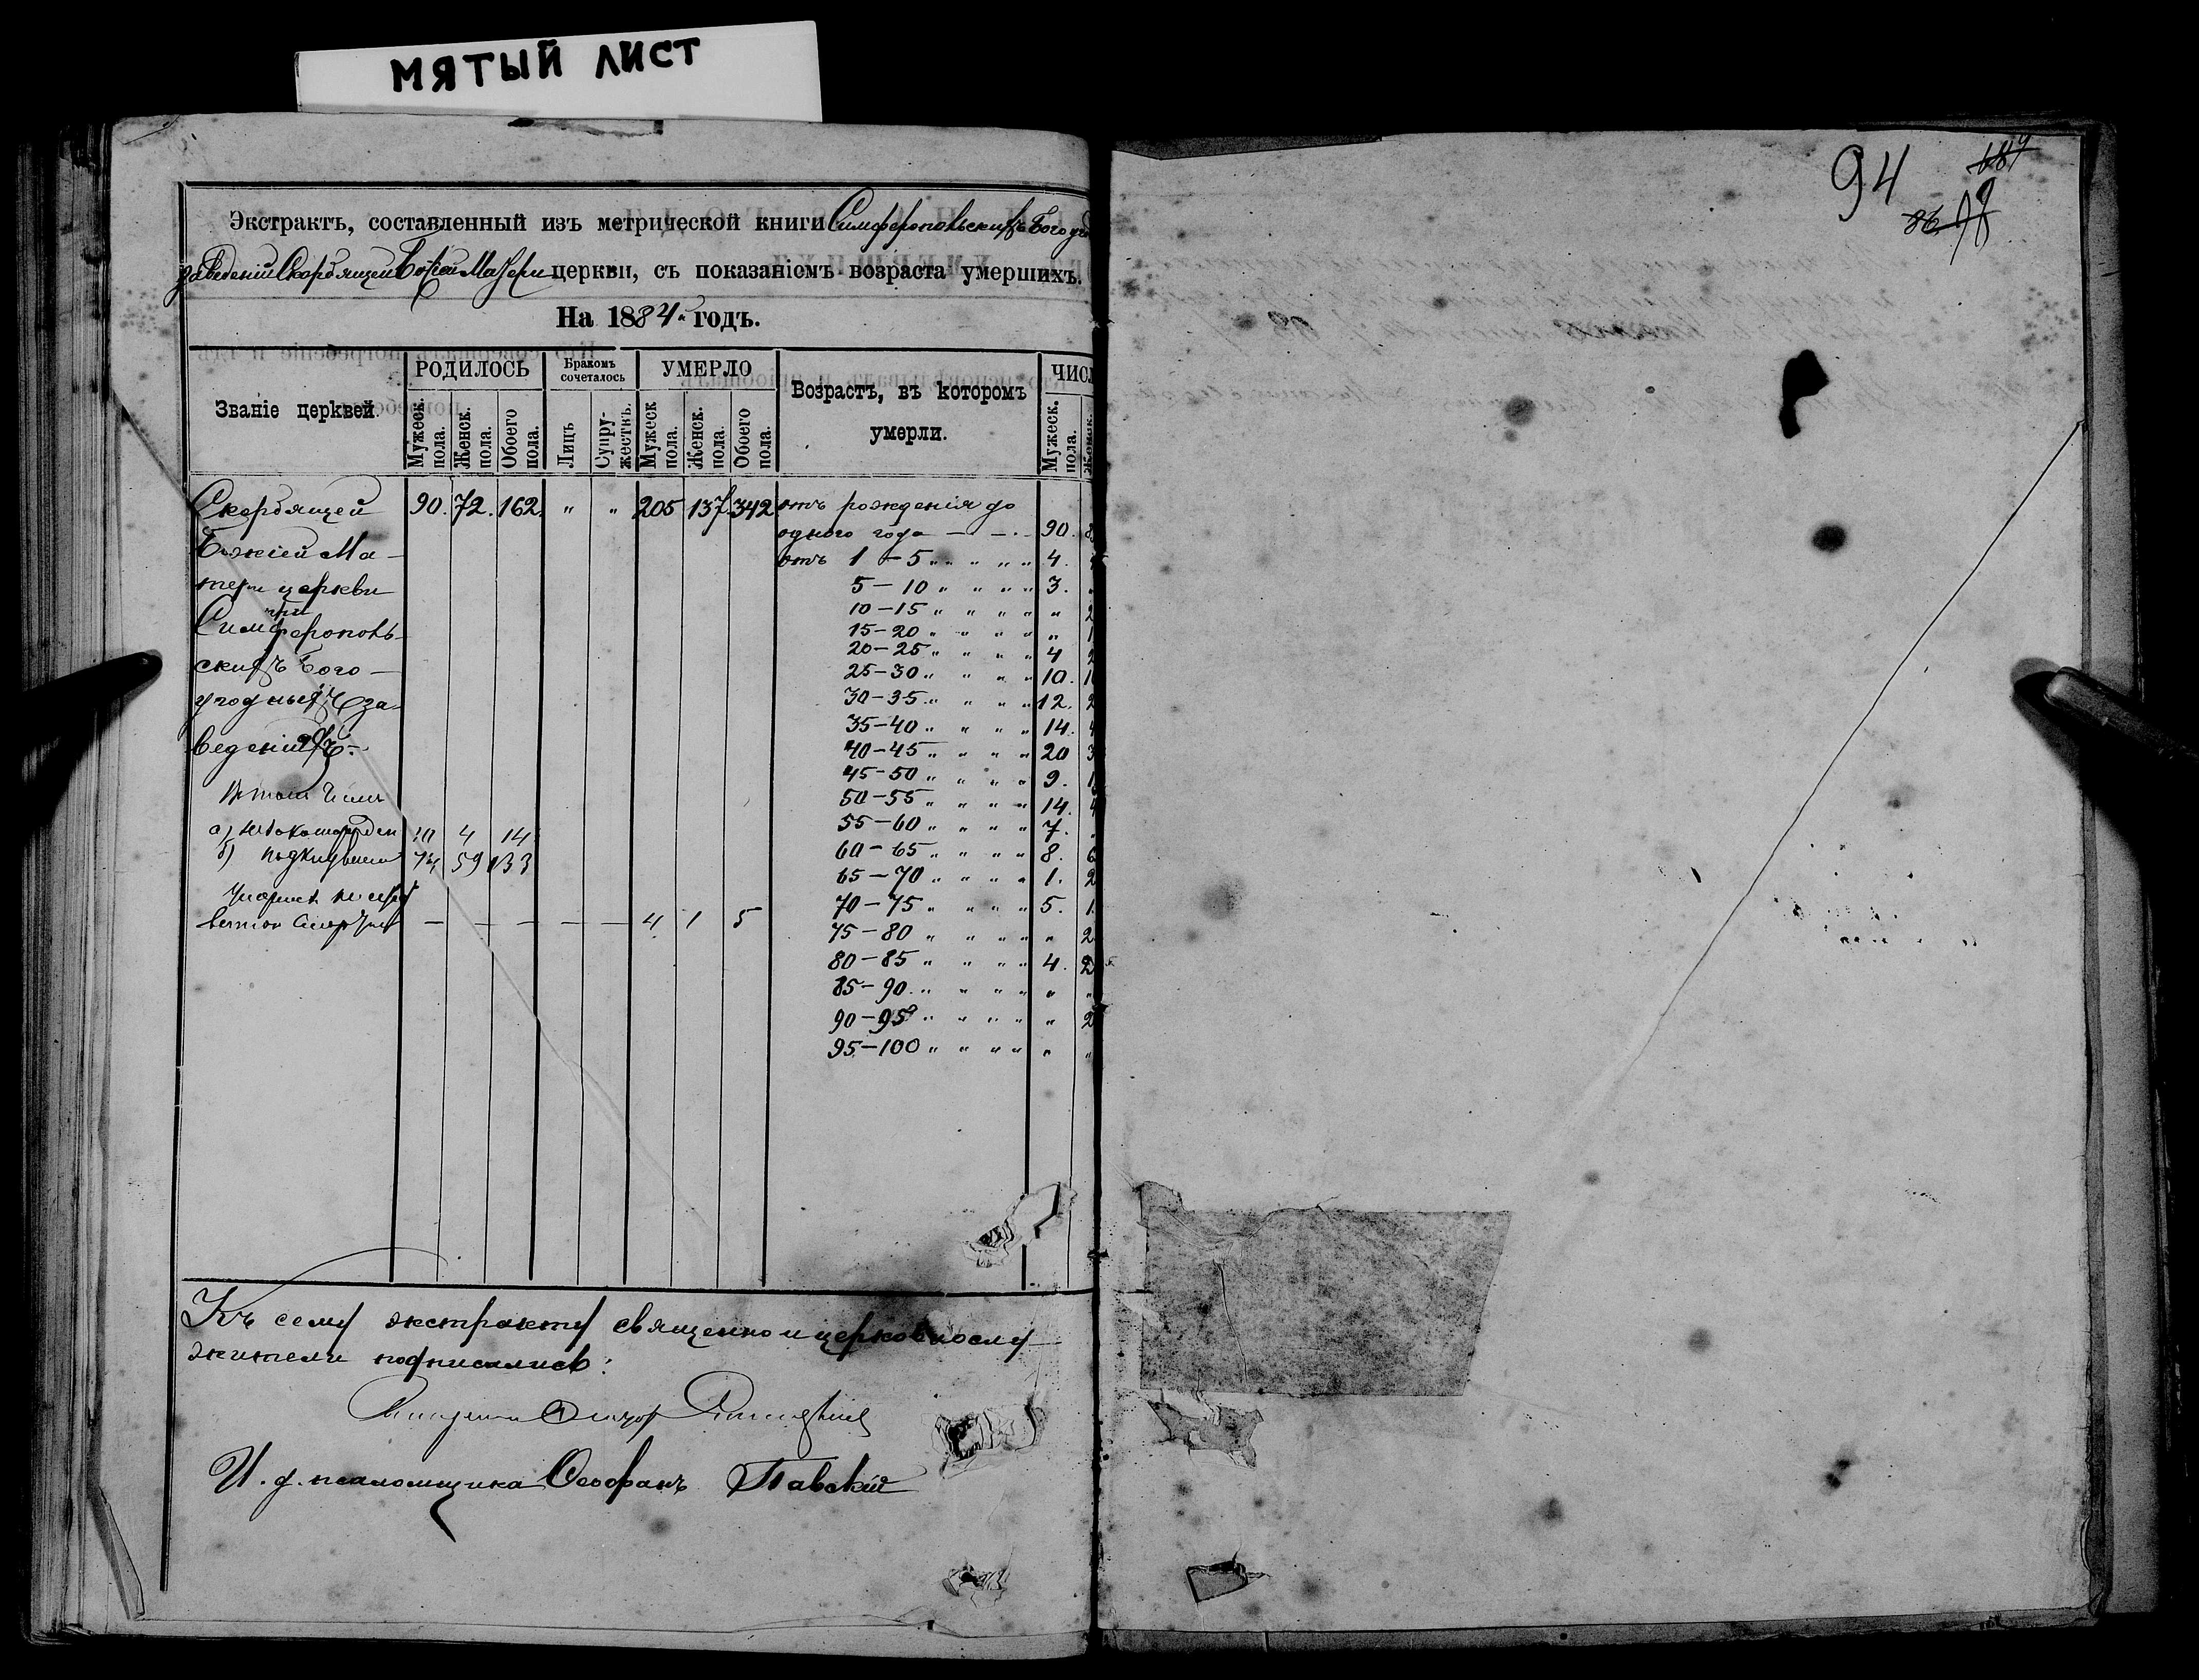 МЯТЫЙ ЛИСТ
94
Экстрактъ, составленный изъ метрической книги Симферопольскихъ Богоуго
заведеній Скорбящей Божіей Матери церкви, съ показаніемъ возраста умершихъ.
На 1884 годъ.
Званіе церквей.
РОДИЛОСЬ
Бракомъ сочеталось
УМЕРЛО
Возрастъ, въ которомъ умерли.
ЧИСЛ
Мужеск. пола.
Женск. пола.
Обоего пола.
Лицъ
Супружествъ.
Мужеск пола.
Женск. пола.
Обоего пола.
Мужеск. пола.
Женск.
Скорбящей 90. 72. 162. " " 205 137 342 отъ рожденія до
одного года — — 90. 8
Божіей Ма- отъ 1 – 5 " " " " " 4.
тери церкви 5 – 10 " " " " 3. "
10 – 15 " " " " " 2
при
Симферополь- 15 – 20 " " " " " 1
20 – 25 " " " " 4 2
скихъ Бого- 25 – 30 " " " " 10. 1
угодныхъ за- 30 – 35 " " " " 12. 2
35 – 40 " " " " 14. 4
ведениіяхъ. 40 – 45 " " " " 20 3
45 – 50 " " " " 9. 1
Въ томъ числѣ 50 – 55 " " " " 14. 4
а) 10 4 14 55 – 60 " " " " 7. "
б) 74 59 133 60 – 65 " " " " 8. 6
65 – 70 " " " " 1. 2
70 – 75 " " " " 5. 1
— — — — — 4 1 5 75 – 80 " " " " " 2
80 – 85 " " " " 4. 2
85 – 90 " " " " " "
90 – 95 " " " " " 2
95 – 100 " " " " " "
Къ сему экстракту священно и церковнослу-
жители подписались:
И. д. псаломщика Ѳеофанъ Павскій